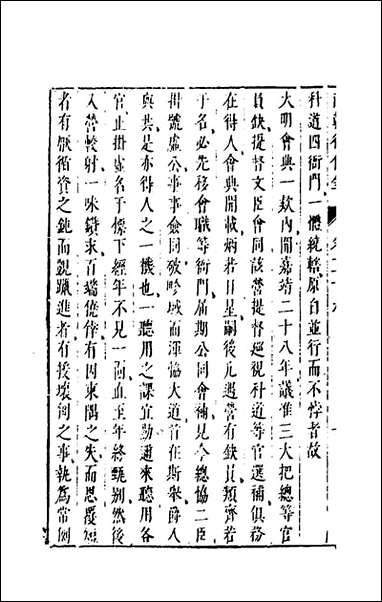 科道四衙門一體統轄原自並行而不悖者故
大明會典一款內開嘉靖二十八年議准三大把總等官
員缺提督文臣會同該營提督巡視科道等官選補俱務
在得人會典開載炳若日星嗣後凡遇營有缺員類齊若
干名必先移會職等衙門屆期公同會補見今總協二臣
掛號虛公事事僉同破畛域而渾協大道首在斯舉薛人
與共是亦得人之一機也一聽用之課宜勤邇來聽用各
官止掛虛名于標下經年不見一面直至年終甄別然後
入營較射一味鑽求百端僥倖有因東隅之失而思覆短
者有厭循資之鈍而覬躐進者有援壞例之事執為常例